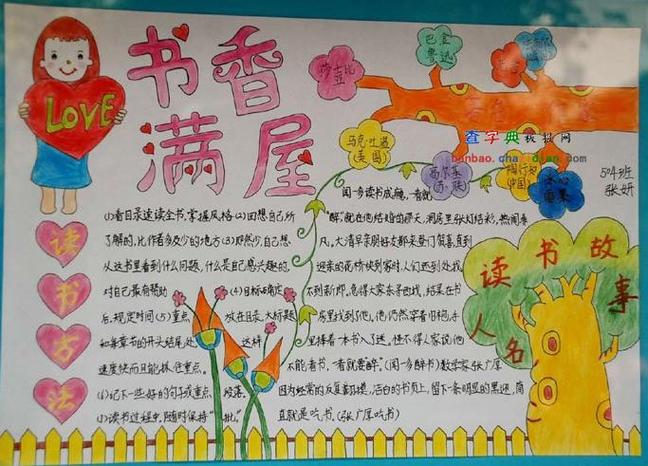 书香
满屋
LOVE
莎士比亚
巴金
鲁迅
马克·吐温
(美国)
高尔基
(苏联)
陶行知
(中国)
冰心
雨果
查字典板报网
banbao.chazidian.com
504班
张妍
读书方法
(1)看目录速读全书,掌握风格(2)回想自己所
了解的,比作者多及少的地方(3)既然少,自己想
从这书里看到什么问题,什么是自己感兴趣的,
对自己最有帮助 (4)目标明确
后,规定时间(5)重点 放在目录、大标题
和每章节的开头结尾处, 这样
速度快而且能抓住重点。
(6)记下一些好的句子或重点 段落。
读书过程中,随时保持 “批”
闻一多读书成瘾,一看就
“醉”,就在他结婚的那天,洞房里张灯结彩,热闹非
凡。大清早亲朋好友都来登门贺喜,直到
迎亲的花轿快到家时,人们还到处找
不到新郎。急得大家东寻西找,结果在书
房里找到了他。他仍然穿着旧袍,手
里捧着一本书入了迷。怪不得人家说他
不能看书,一看就要“醉”。(闻一多醉书)数学家张广厚
因为经常的反复翻摸,洁白的书页上,留下一条明显的黑迹,简
直就是吃书。(张广厚吃书)
读书故事
人名